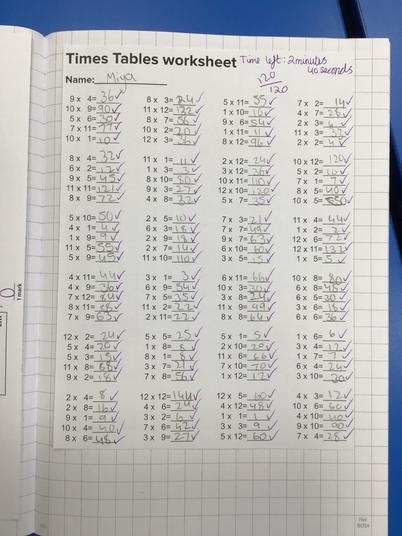 Times Tables worksheet
Time left: 2minutes
40 seconds
Name: Miya
120
120
9 x 4= 36 8 x 3= 24 5 x 11= 55 7 x 2= 14
10 x 9= 90 11 x 12= 132 1 x 10= 10 4 x 7= 28
5 x 6= 30 8 x 7= 56 9 x 6= 54 2 x 3= 6
7 x 11= 77 10 x 2= 20 1 x 11= 11 11 x 3= 33
10 x 1= 10 12 x 3= 36 8 x 12= 96 2 x 2= 4
8 x 4= 32 11 x 1= 11 2 x 12= 24 10 x 12= 120
6 x 2= 12 1 x 3= 3 3 x 12= 36 5 x 2= 10
9 x 5= 45 8 x 10= 80 10 x 11= 110 7 x 1= 7
11 x 11= 121 9 x 3= 27 12 x 10= 120 8 x 5= 40
8 x 9= 72 4 x 8= 32 7 x 5= 35 10 x 5= 50
5 x 10= 50 2 x 5= 10 7 x 3= 21 11 x 4= 44
4 x 1= 4 6 x 3= 18 7 x 7= 49 2 x 1= 2
1 x 9= 9 2 x 9= 18 9 x 7= 63 12 x 6= 72
11 x 5= 55 2 x 7= 14 6 x 10= 60 12 x 11= 132
5 x 9= 45 11 x 10= 110 3 x 5= 15 1 x 5= 5
4 x 11= 44 3 x 1= 3 6 x 11= 66 10 x 8= 80
4 x 9= 36 9 x 6= 54 10 x 3= 30 6 x 8= 48
7 x 12= 84 7 x 5= 35 3 x 8= 24 5 x 6= 30
8 x 11= 88 11 x 2= 22 11 x 9= 99 3 x 6= 18
7 x 9= 63 2 x 11= 22 8 x 8= 64 6 x 6= 36
12 x 2= 24 5 x 5= 25 5 x 1= 5 1 x 6= 6
5 x 4= 20 1 x 8= 8 2 x 10= 20 3 x 4= 12
5 x 3= 15 8 x 1= 8 11 x 6= 66 1 x 7= 7
11 x 8= 88 3 x 7= 21 7 x 10= 70 6 x 4= 24
9 x 2= 18 7 x 8= 56 1 x 12= 12 3 x 10= 30
2 x 4= 8 12 x 12= 144 12 x 5= 60 4 x 3= 12
2 x 8= 16 4 x 6= 24 4 x 12= 48 10 x 6= 60
9 x 1= 9 3 x 2= 6 1 x 1= 1 4 x 10= 40
10 x 4= 40 7 x 6= 42 3 x 3= 9 9 x 10= 90
8 x 6= 48 3 x 9= 27 5 x 12= 60 7 x 4= 28
1 mark